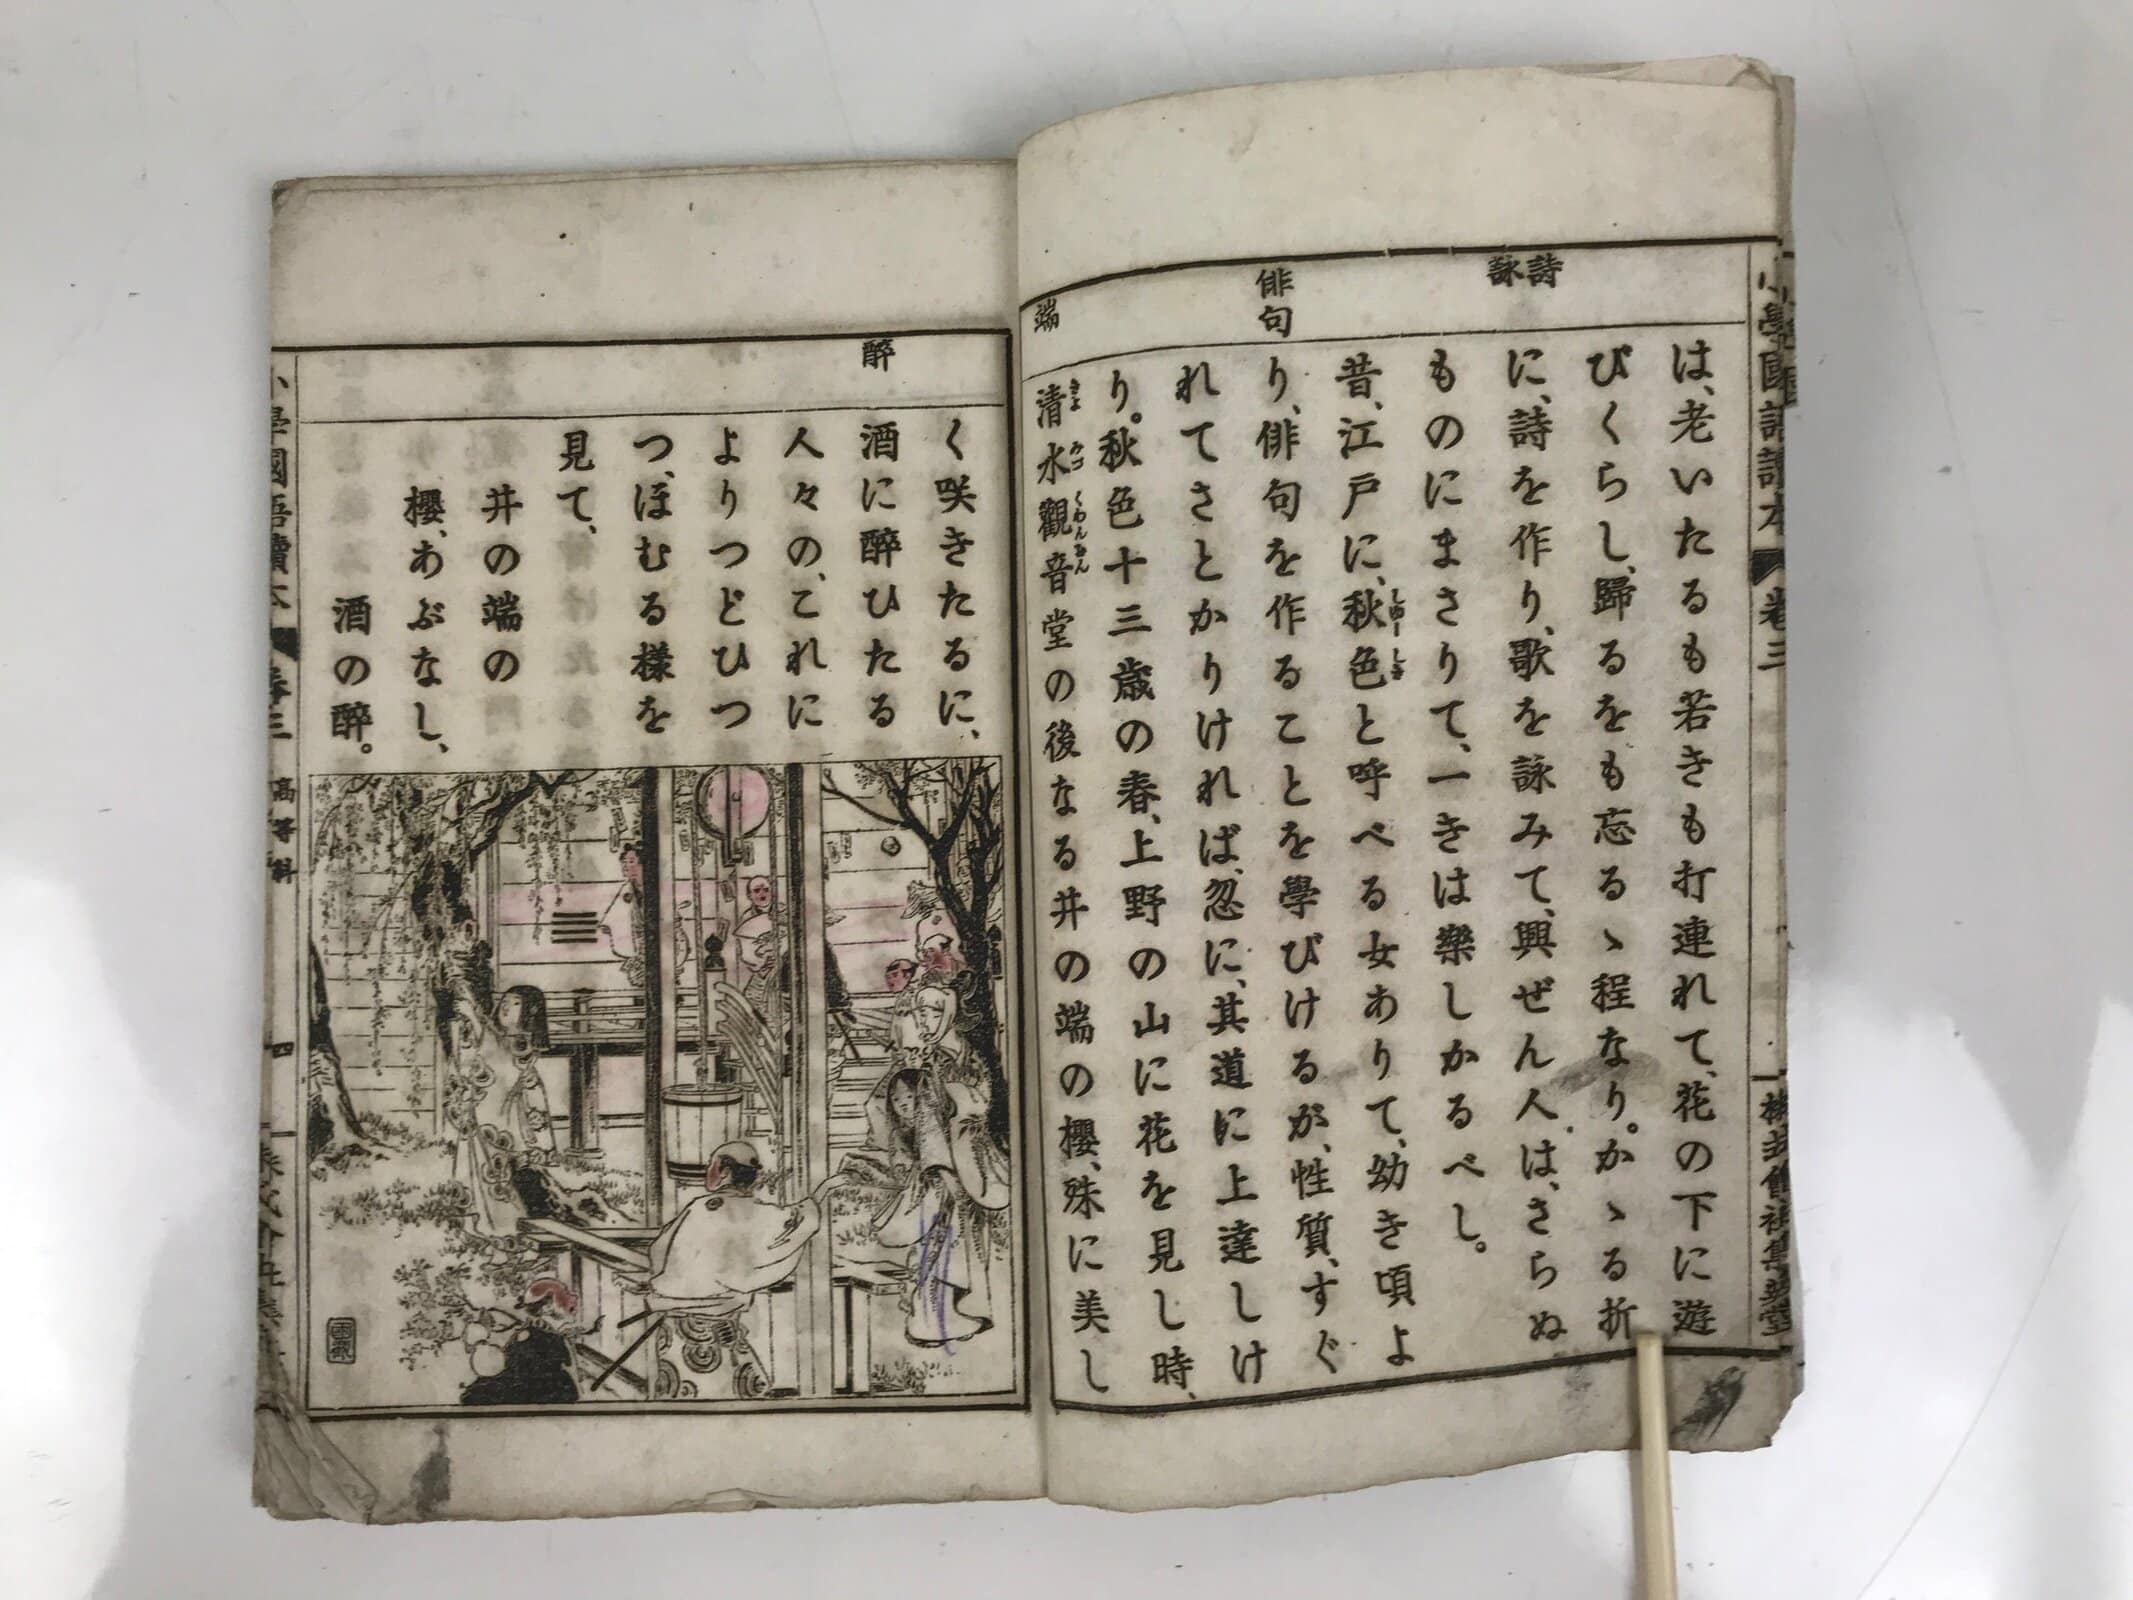 小學國語讀本 卷三
詩
詠
俳句
端
は、老いたるも若きも打連れて、花の下に遊
びくらし、歸るをも忘るゝ程なり。かゝる折
に、詩を作り、歌を詠みて、興ぜん人は、さらぬ
ものにまさりて、一きは樂しかるべし。
昔、江戸に、秋色と呼べる女ありて、幼き頃よ
しゆーしき
り、俳句を作ることを學びけるが、性質、すぐ
れてさとかりければ、忽に、其道に上達しけ
り。秋色十三歳の春、上野の山に花を見し時、
清水觀音堂の後なる井の端の櫻、殊に美し
きよみづくわんおん
醉
く咲きたるに、
酒に醉ひたる
人々の、これに
よりつどひつ
つ、ほむる樣を
見て、
井の端の
櫻、あぶなし、
酒の醉。
小學國語讀本 卷三 高等科 四